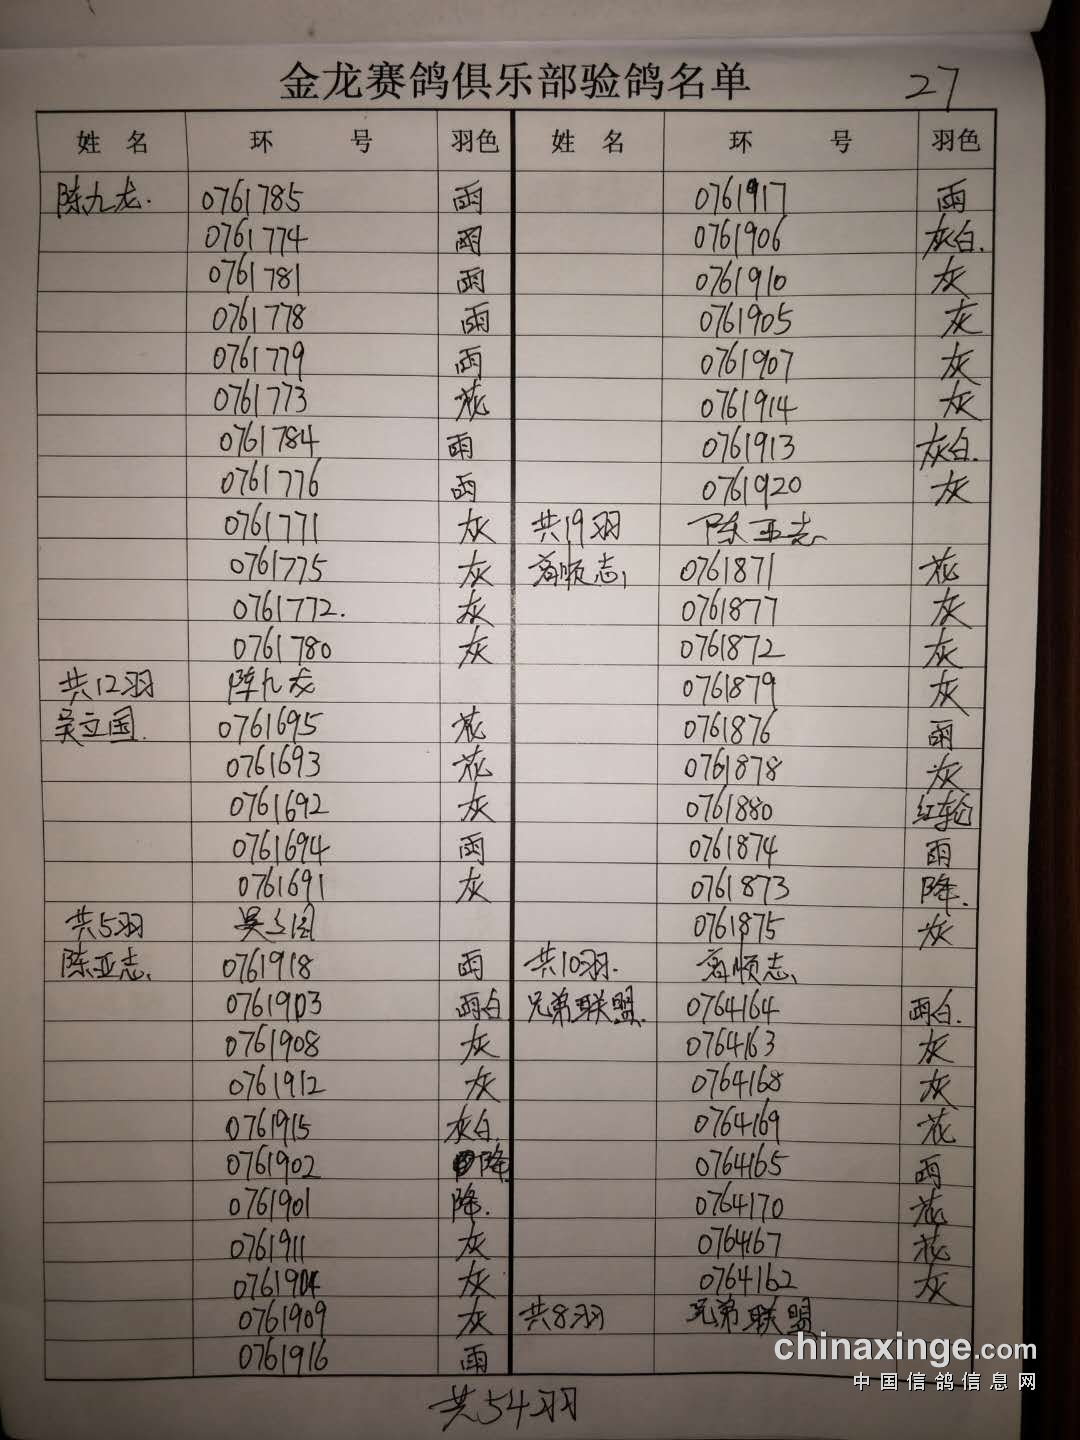 金龙赛鸽俱乐部验鸽名单 27
姓名 环号 羽色 姓名 环号 羽色
陈九龙. 0761785 雨
0761774 雨
0761781 雨
0761778 雨
0761779 雨
0761773 花
0761784 雨
0761776 雨
0761771 灰
0761775 灰
0761772. 灰
0761780 灰
共12羽 陈九龙
吴立国. 0761695 花
0761693 花
0761692 灰
0761694 雨
0761691 灰
共5羽 吴立国
陈亚志、 0761918 雨
0761903 雨白
0761908 灰
0761912 灰
0761915 灰白.
0761902 降.
0761901 降.
0761911 灰
0761904 灰
0761909 灰
0761916 雨
0761917 雨
0761906 灰白.
0761910 灰
0761905 灰
0761907 灰
0761914 灰
0761913 灰白.
0761920 灰
共19羽 陈亚志、
顺志、 0761871 花
0761877 灰
0761872 灰
0761879 灰
0761876 雨
0761878 灰
0761880 红轮
0761874 雨
0761873 降.
0761875 灰
共10羽. 顺志、
兄弟联盟. 0764164 雨白.
0764163 灰
0764168 灰
0764169 花
0764165 雨
0764170 花
0764167 花
0764162 灰
共8羽 兄弟联盟
共54羽
chinaxinge.com
中国信鸽信息网